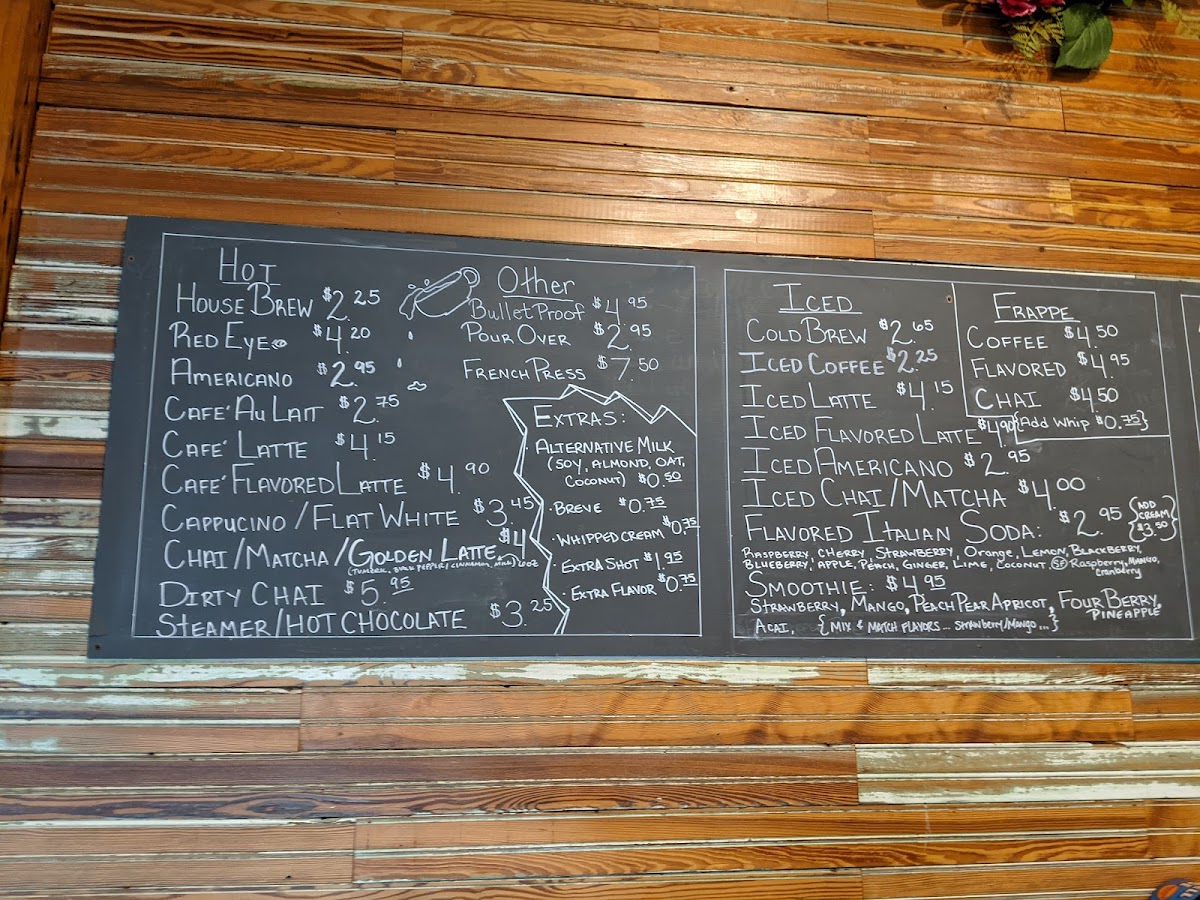 HOT
HOUSE BREW $2.25
RED EYE $4.20
AMERICANO $2.95
CAFE' AU LAIT $2.75
CAFE' LATTE $4.15
CAFE' FLAVORED LATTE $4.90
CAPPUCINO / FLAT WHITE $3.45
CHAI / MATCHA / GOLDEN LATTE $4
(TUMERIC, BLACK PEPPER, CINNAMON, MILK) 10oz
DIRTY CHAI $5.95
STEAMER / HOT CHOCOLATE $3.25
Other
BulletProof $4.95
POUR OVER $2.95
FRENCH PRESS $7.50
EXTRAS:
ALTERNATIVE MILK
(SOY, ALMOND, OAT,
COCONUT) $0.50
· BREVE $0.75
· WHIPPED CREAM $0.75
· EXTRA SHOT $1.95
· EXTRA FLAVOR $0.75
ICED
COLD BREW $2.65
ICED COFFEE $2.25
ICED LATTE $4.15
ICED FLAVORED LATTE $4.90
ICED AMERICANO $2.95
ICED CHAI / MATCHA $4.00
FLAVORED ITALIAN SODA: $2.95 {ADD CREAM $3.50}
RASPBERRY, CHERRY, STRAWBERRY, Orange, LEMON, BLACKBERRY,
BLUEBERRY, APPLE, PEACH, GINGER, LIME, COCONUT. SF Raspberry, MANGO,
Cranberry
SMOOTHIE: $4.95
STRAWBERRY, MANGO, PEACH PEAR APRICOT, FOUR BERRY,
PINEAPPLE
ACAI, {MIX & MATCH FLAVORS... Strawberry/Mango...}
FRAPPE
COFFEE $4.50
FLAVORED $4.95
CHAI $4.50
{Add Whip $0.75}